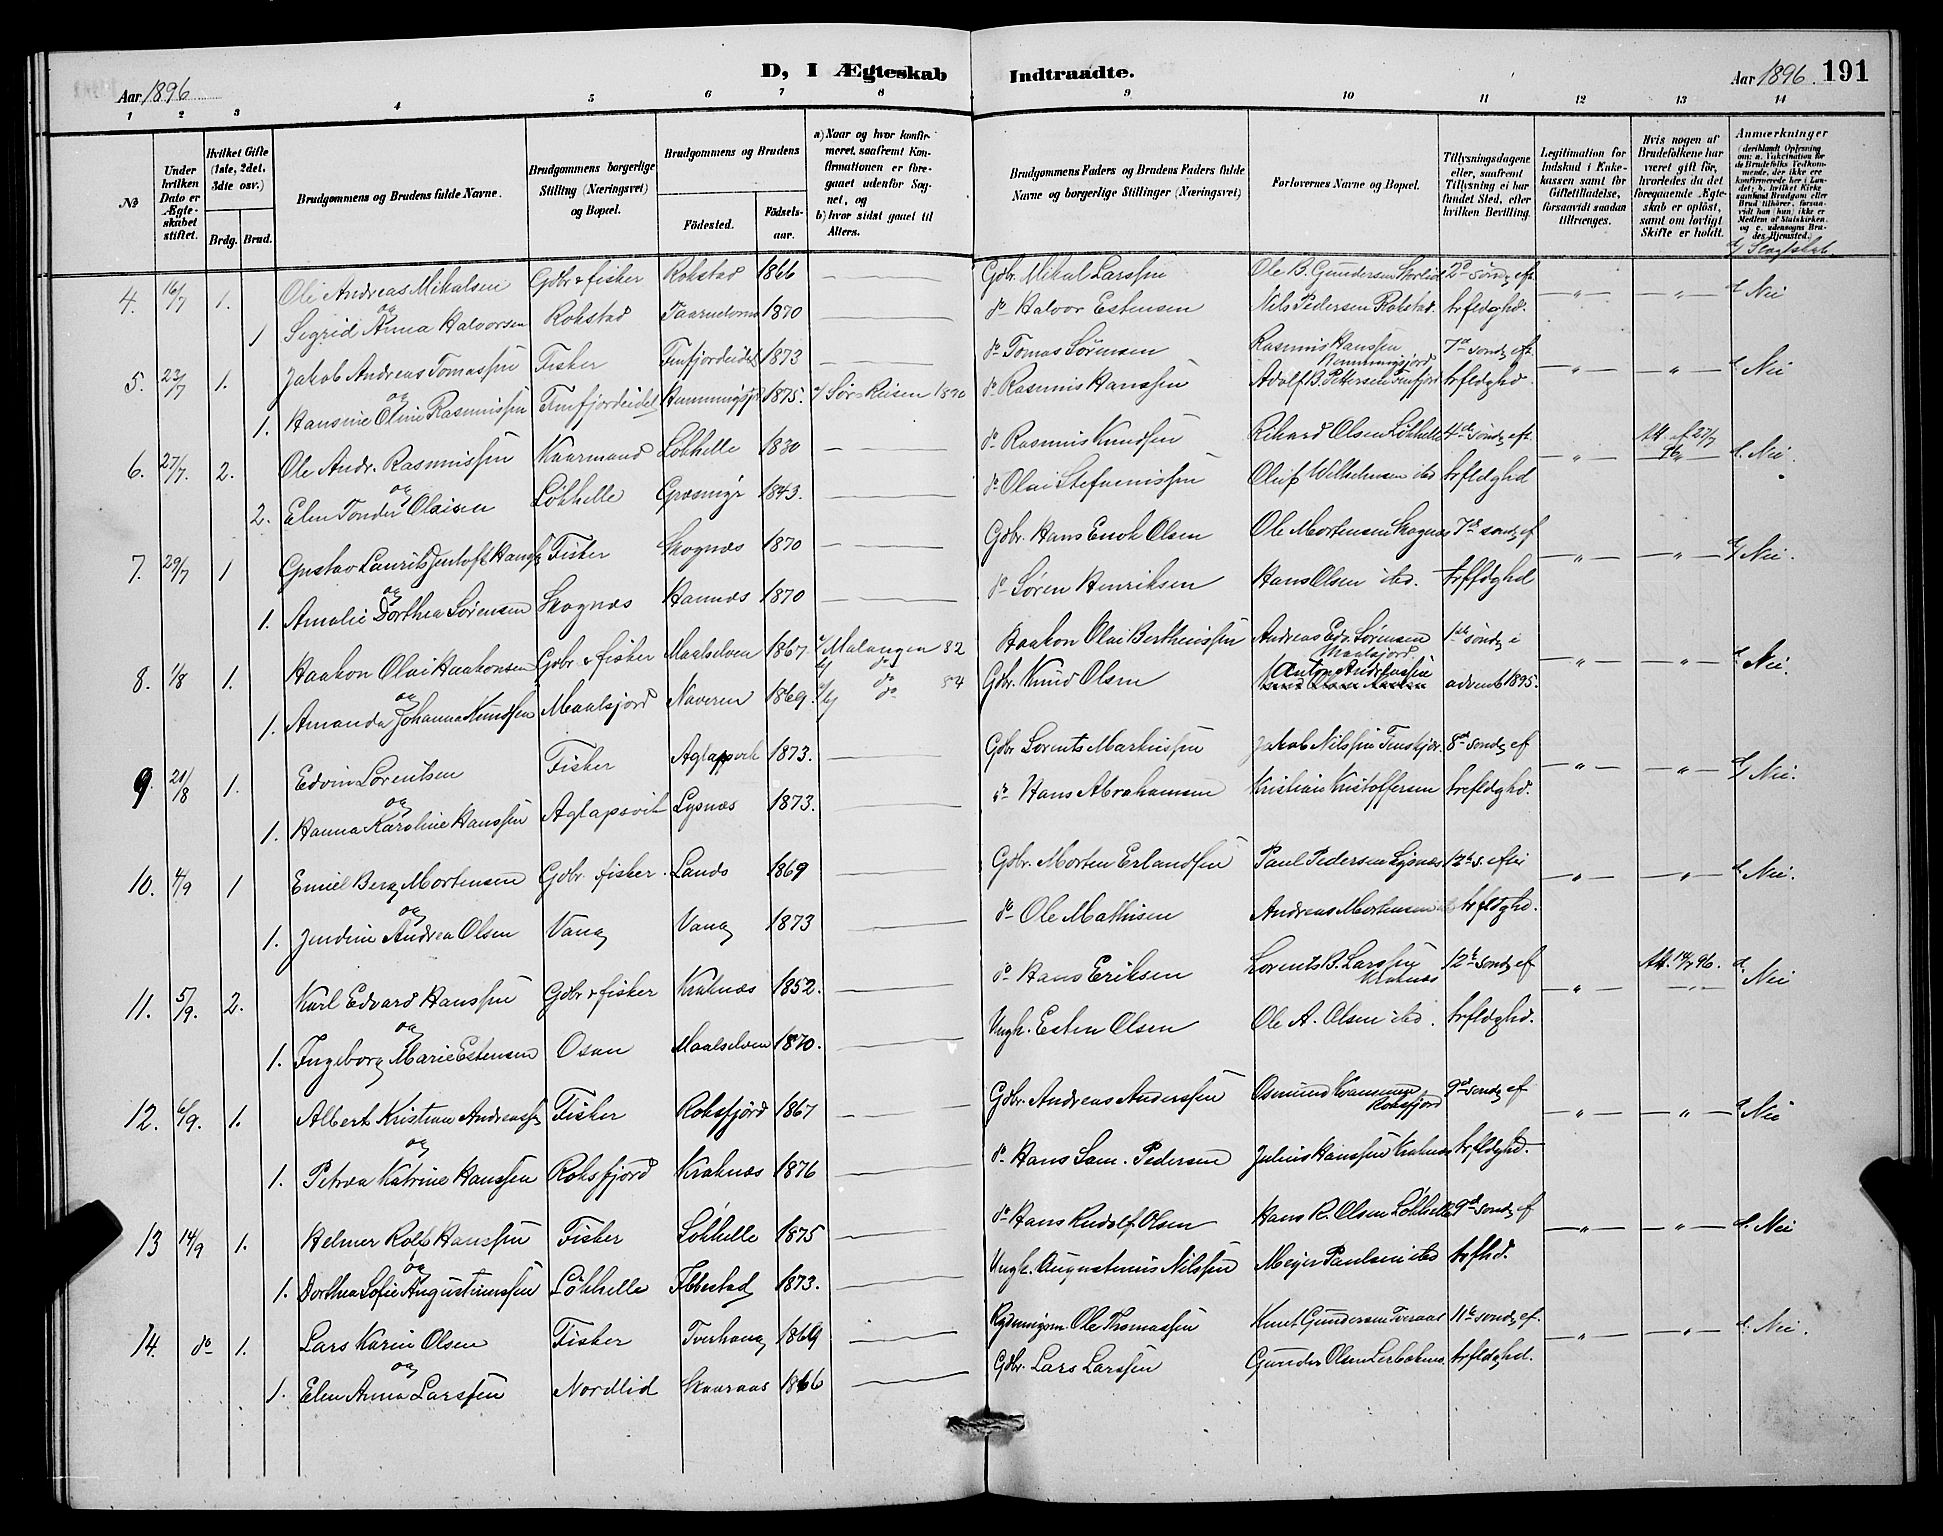 Aar 1896
D, I Ægteskab Indtraadte.
Aar 1896. 191
1 2 3 4 5 6 7 8 9 10 11 12 13 14
No
Under hvilken Dato er Ægteskabet stiftet.
Hvilket Gifte (1ste, 2det, 3dte osv.)
Brdg. Brud.
Brudgommens og Brudens fulde Navne.
Brudgommens borgerlige Stilling (Næringsvei) og Bopæl.
Brudgommens og Brudens
Fødested. Fødselsaar.
a) Naar og hvor konfirmeret, saafremt Konfirmationen er foregaaet udenfor Sognet, og b) hvor sidst gaaet til Alters.
Brudgommens Faders og Brudens Faders fulde Navne og borgerlige Stillinger (Næringsvei)
Forlovernes Navne og Bopæl.
Tillysningsdagene eller, saafremt Tillysning ei har fundet Sted, efter hvilken Bevilling.
Legitimation for Indskud i Enkekassen samt for Giftetilladelse, forsaavidt saadan tiltrænges.
Hvis nogen af Brudefolkene har været gift før, hvorledes da det foregaaende Ægteskab er opløst, samt om lovligt Skifte er holdt.
Anmærkninger (deriblandt Oplysning om: a. Vakcination for de Brudefolks Vedkommende, der ikke ere konfirmerede her i Landet; b. hvilket Kirkesamfund Brudgom eller Brud tilhører, forsaavidt han (hun) ikke er Medlem af Statskirken, og c. udensogns Brudes Hjemsted.)
d/ Slægtskab.
4. 16/7 1. Ole Andreas Mikalsen Gdbr & fisker Rokstad 1866 Gdbr. Mikal Larssen Ole B. Gundersen 2d sønd. eft. d. Nei
og
1 Sigrid Anna Halvorsen Rokstad 1870 do Halvor Estensen Nils Pedersen Rokstad. trfldghd.
5. 23/7 1. Jakob Andreas Tomassen Fisker Finfjordeidet 1873 do Tomas Sørensen Rasmus Hanssen 7d sønd. eft. d. Nei
og
1. Hansine Oline Rasmussen Finfjordeidet 1875. a/ Sør-Reisen 1890 do Rasmus Hanssen Adolf B. Pettersen Finfjord trfldghd.
6. 27/7. 2. Ole Andr. Rasmussen Kaarmand Løkhelle 1830 do Rasmus Knudsen Rikard Olsen Løkhelle 4de sønd. eft. Att. af 27/7 96 d. Nei.
og
2. Elen Tonder Olaisen Løkhelle Græsmyr 1843. do Olai Stefanussen Oluf Wilhelmsen ibd trfldghd
7. 29/7 1 Gustav Laurits Jentoft Hanss. Fisker Skognæs 1870 Gdbr. Hans Enok Olsen Ole Mortensen Skognæs 7de sønd. ef d/ Nei.
og
1. Amalie Dorthea Sørensen Skognæs Hannæs 1870 do Søren Henriksen Hans Olsen ibd. trfldghd
8. 1/8 1. Haakon Olai Haakonsen Gdbr. & fisker Maalselven 1867. a/ Malangen 82 Haakon Olai Berthinssen Andreas Edv. Sørensen Maalsjord. 1ste sønd. i d. Nei.
og b/ do
1. Amanda Johanna Knudsen Maalsjord Naveren 1869. a/b/ do 84 Gdbr. Knud Olsen Anton Andreassen advent 1895.
9. 21/8 1. Edvin Lorentsen Fisker Aglapsvik 1873. Gdbr Lorents Markussen Jakob Nilssen 8d sønd. ef d/ Nei.
og
1. Hanna Karoline Hanssen Aglapsvik Lysnæs 1873. do Hans Abrahamsen Kristian Kristoffersen trefldghd.
10. 4/9 1 Emiel Berg Mortensen Gdbr. fisker. Lands 1869 Gdbr. Morten Erlandsen Paul Pedersen Lysnæs 12te s. efter d. Nei.
og
1. Jendine Andrea Olsen Vang Vang 1873 do Ole Mathisen Andreas Mortensen trfldghd.
11. 5/9. 2. Karl Edvard Hanssen Gdbr & fisker Kraknæs 1852. do Hans Eriksen Lorents B. Larssen Kraknæs 12te sønd. ef Att. 14/7 96. d. Nei
og
1. Ingeborg Marie Estensen Osen Maalselven 1870. Ungk. Esten Olsen Ole A. Olsen ibd. trfldghd.
12. 6/9. 1. Albert Kristian Andreass. Fisker Roksfjord 1867 Gdbr. Andreas Anderssen Osmund Roksfjord 9d sønd. ef d. Nei
og
1. Petra Katrine Hanssen Roksfjord Kraknæs 1876 do Hans Sam. Pedersen Julius Hanssen Kraknæs trfldghd.
13 14/9 1. Helmer Rolf Hanssen Fisker Løkhelle 1875 do Hans Rudolf Olsen Hans R. Olsen Løkhelle 9d sønd. ef d. Nei
og
1. Dorthea Sofie Augustinussen Løkhelle Ibbestad 1873. Ungk. Augustinus Nilssen Meyer Paulsen ibd trfhd.
14. do 1. Lars Karin Olsen Fisker Tverhaug 1869 Rydningsm. Ole Thomassen Knut Gundersen 11te sønd. ef. d. Nei.
og
1. Elen Anna Larssen Nordlid Skaaraas 1866 Gdbr. Lars Larssen Gunder Olsen trfldghd.